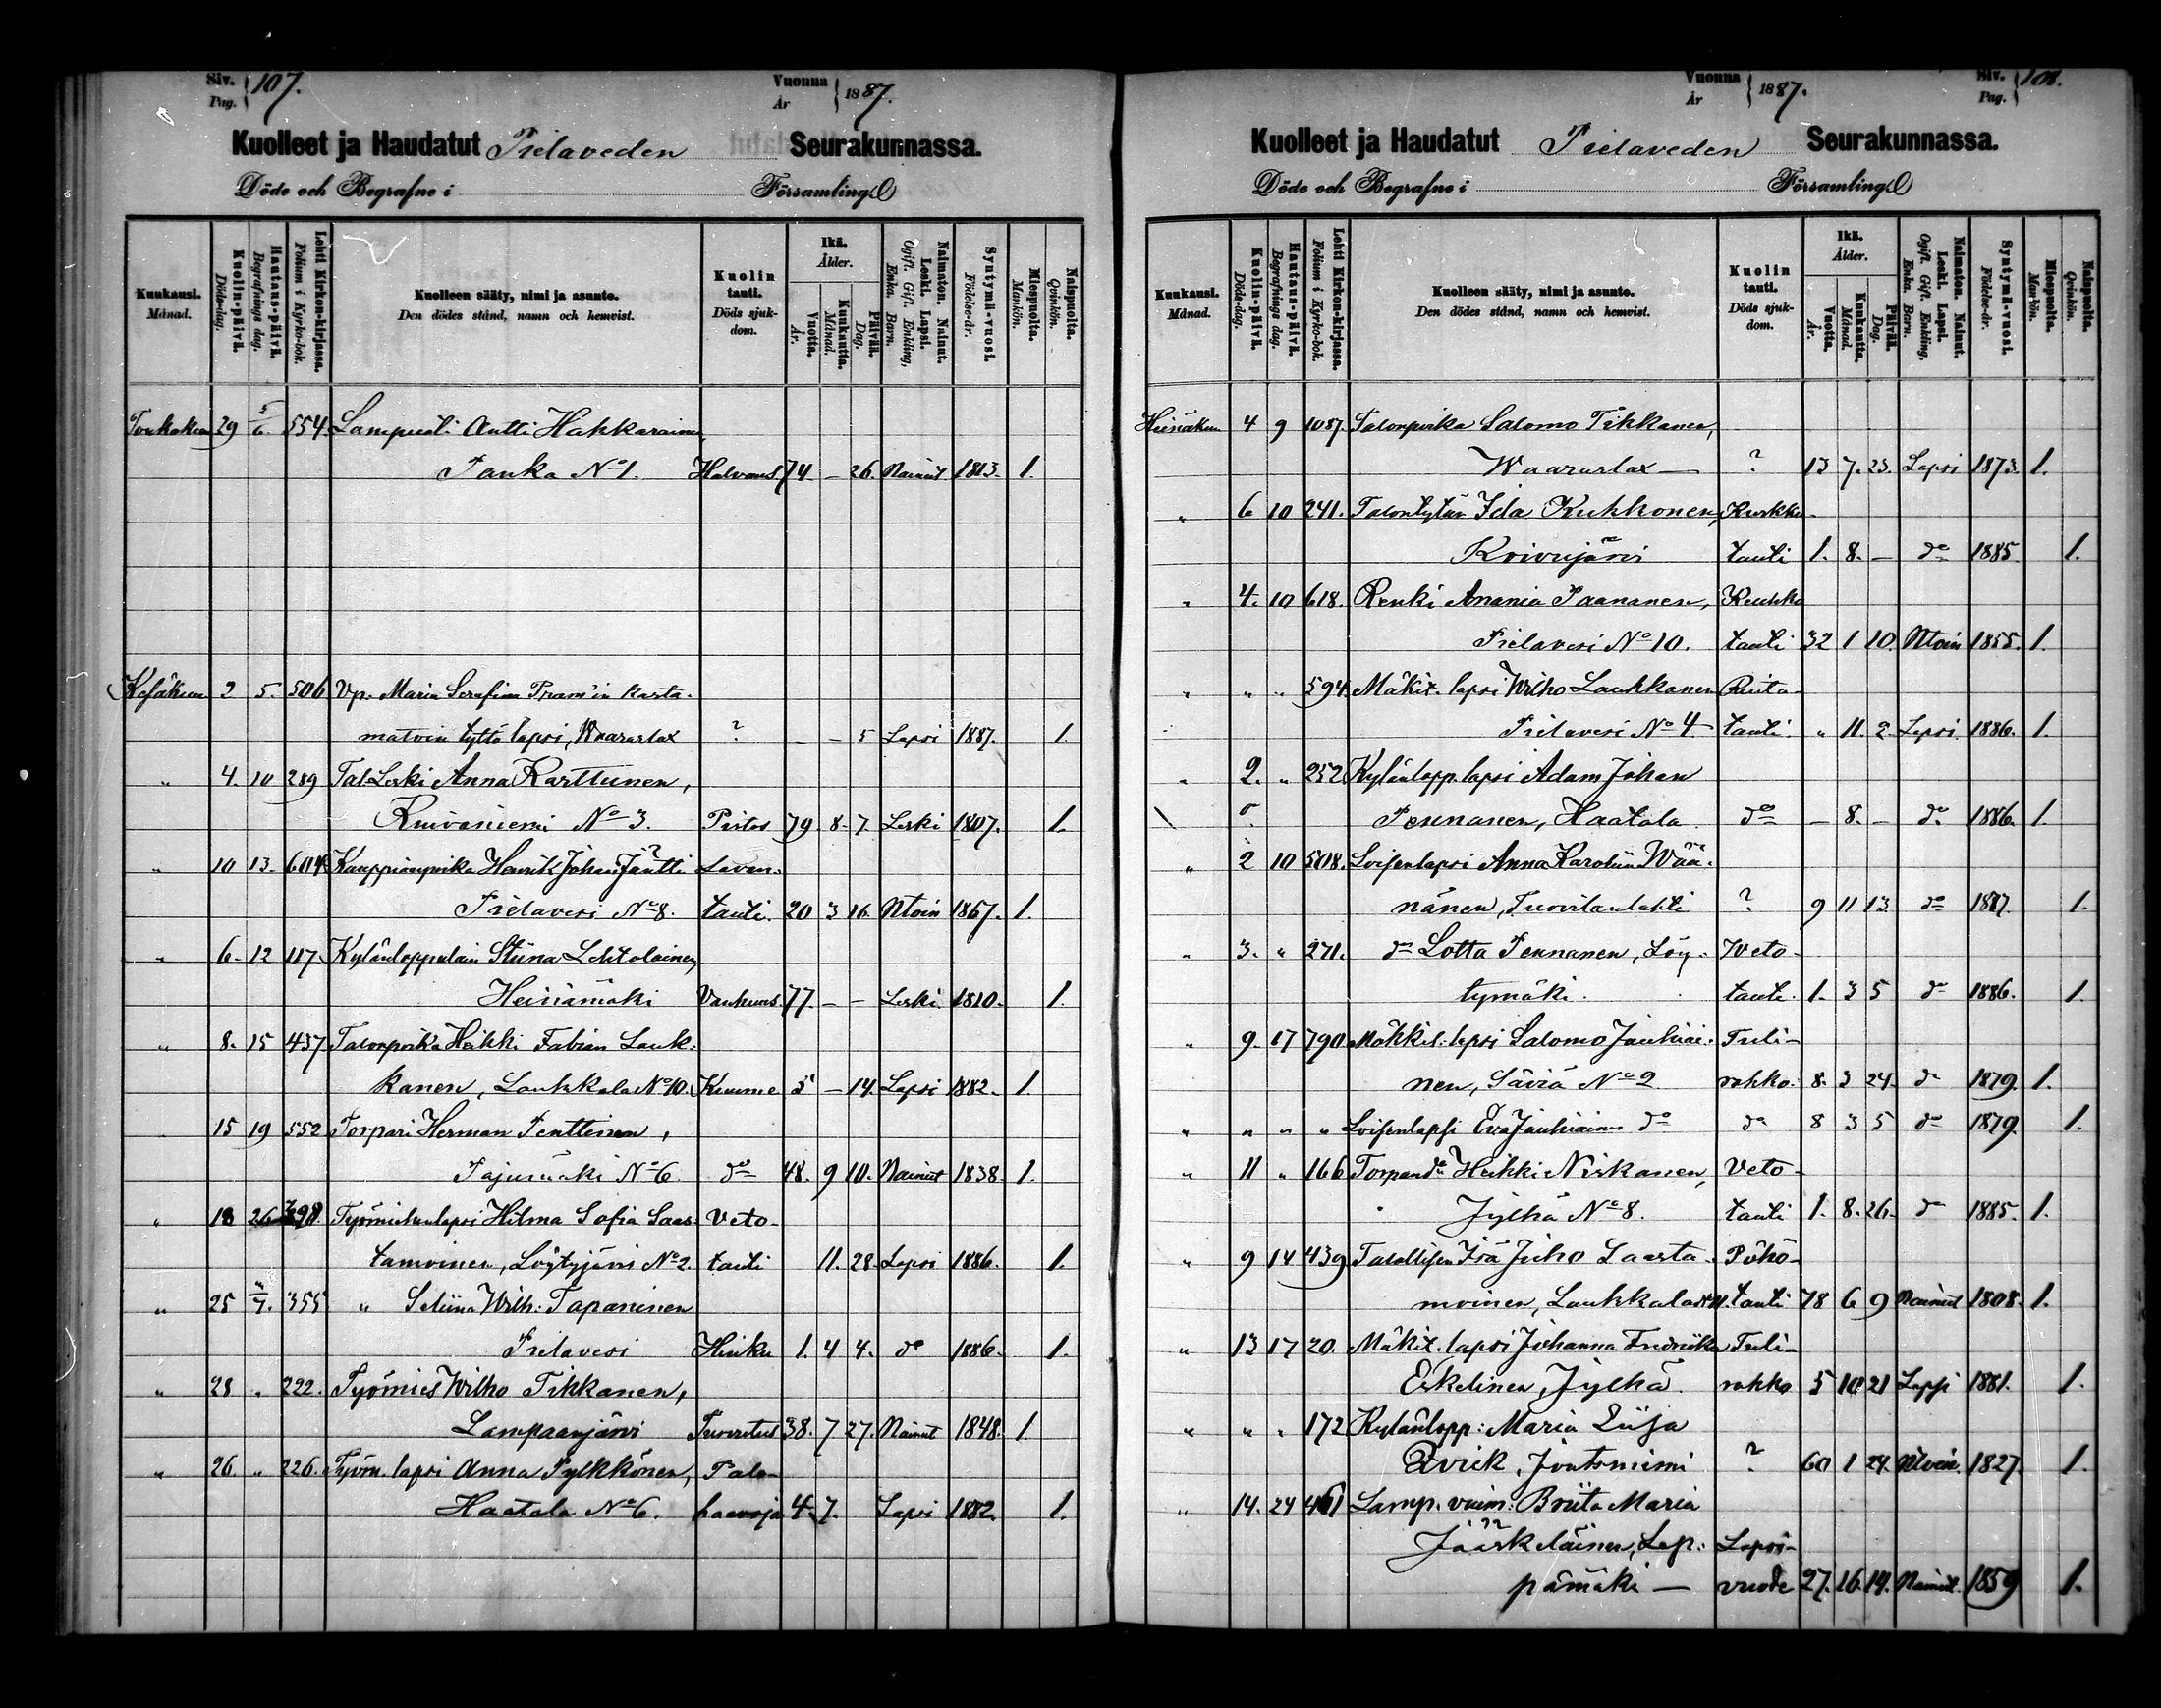 Siv. Pag. 107.
Vuonna År 1887.
Kuolleet ja Haudatut Pielaveden Seurakunnassa.
Döde och Begrafne i Församling.
Kuukausi. Månad.
Kuolin-päivä. Döds-dag.
Hautaus-päivä. Begrafnings dag.
Lehti Kirkon-kirjassa. Folium i Kyrko-bok.
Kuolleen sääty, nimi ja asunto. Den dödes stånd, namn och hemvist.
Kuolin tauti. Döds sjukdom.
Ikä. Ålder.
Vuotta. År.
Kuukautta. Månad.
Päivää. Dag.
Naimaton. Nainut. Leski. Lapsi. Ogift. Gift. Enkling, Enka. Barn.
Syntymä-vuosi. Födelse-år.
Miespuolta. Mankön.
Naispuolta. Qvinkön.
Toukokuu 29 5/6. 554. Lampuoti Antti Hakkarainen,
Panka No 1. Halvaus 74. — 26. Nainut 1813. 1.
Kesäkuu 2 5. 506 Vp. Maria Serafina Framin kasta-
matoin tyttö lapsi, Waaraslax ? — — 5 Lapsi 1887. 1.
" 4. 10 289 Tal. Leski Anna Karttunen,
Kuivaniemi No 3. Pistos 79 8. 7. Leski 1807. 1.
" 10 13. 604 Kauppianpoika Henrik Johan Jäntti Lavan-
Pielavesi No 8. tauti. 20 3 16. Ntoin 1867. 1.
" 6. 12 117. Kylänloppulain Stiina Lehtolainen,
Heinämäki Vanhuus. 77. — — Leski. 1810. 1.
" 8. 15 437 Talonpoika Heikki Fabian Lauk-
kanen, Laukkala No 10. Kuume 5 — 14. Lapsi 1882. 1.
15 19 552 Torpari Herman Penttinen,
Pajumäki No 6. do 48. 9 10. Nainut 1838. 1.
" 18 26 398. Työmiehenlapsi Hilma Sofia Saas- Veto-
tamoinen, Löytyjärvi No 2. tauti 11. 28. Lapsi 1886. 1.
" 25 "/7. 355 " Seliina Wilh: Tapaninen
Pielavesi Hinku 1. 4 4. do 1886. 1.
" 28 " 222. Työmies Wilho Tikkanen,
Lampaanjärvi Turvotus 38. 7 27. Nainut 1848. 1.
" 26. " 226. Työm. lapsi Anna Pylkkönen, Palo-
Haatala No 6. haavoja 4. 7. Lapsi 1882. 1.
Vuonna År 1887.
Siv. Pag. 108.
Kuolleet ja Haudatut Pielaveden Seurakunnassa.
Döde och Begrafne i Församling.
Kuukausi. Månad.
Kuolin-päivä. Döds-dag.
Hautaus-päivä. Begrafnings dag.
Lehti Kirkon-kirjassa. Folium i Kyrko-bok.
Kuolleen sääty, nimi ja asunto. Den dödes stånd, namn och hemvist.
Kuolin tauti. Döds sjukdom.
Ikä. Ålder.
Vuotta. År.
Kuukautta. Månad.
Päivää. Dag.
Naimaton. Nainut. Leski. Lapsi. Ogift. Gift. Enkling, Enka. Barn.
Syntymä-vuosi. Födelse-år.
Miespuolta. Mankön.
Naispuolta. Qvinkön.
Heinäkuu 4 9 1087. Talonpoika Salomo Tikkanen,
Waaraslax — ? 13 7. 23. Lapsi 1873. 1.
" 6 10 241. Talontytär Ida Kukkonen, Kurkku-
Koivujärvi tauti 1. 8. — do 1885. 1.
" 4. 10 618. Renki Anania Paananen, Keuhko
Pielavesi No 10. tauti 32 1 10. Ntoin 1855. 1.
" " " 594. Mäkit. lapsi Wilho Laukkanen Riuta-
Pielavesi No 4 tauti. " 11. 2. Lapsi. 1886. 1.
" 2. " 252 Kylänlopp. lapsi Adam Johan
Pennanen, Haatala do — 8. — do 1886. 1.
" 2 10 508. Loisenlapsi Anna Karoliina Wää-
nänen, Tuovilanlahti ? 9 11 13 do 1887. 1.
" 3. " 271. do Lotta Pennanen, Löy- Veto-
tymäki. tauti. 1. 3 5 do 1886. 1.
" 9. 17 790 Mökkil. lapsi Salomo Jauhiai- Tuli-
nen, Säviä No 2 rohko. 8. 3 24. do 1879. 1.
" " " " Loisenlapsi Eva Jauhiain. do do 8 3 5 do 1879. 1.
" 11 " 166 Torpan do Heikki Niskanen, Veto-
Jylhä No 8. tauti 1. 8. 26. do 1885. 1.
" 9 14 439 Talollisen Isä Juho Saasta- Pöhö-
moinen, Laukkala No 11. tauti 78 6 9 Nainut 1808. 1.
" 13 17 20. Mäkit. lapsi Johanna Fredriika Tuli-
Eskelinen, Jylhä. rohko 5 10 21 Lapsi 1881. 1.
" " " 172 Kylänlopp: Maria Liisa
Qvick, Joutsniemi ? 60 1 24. Ntoin. 1827. 1.
" 14. 24 461 Lamp. vaim: Briita Maria
Jääskeläinen, Lep- Lapsi-
pämäki — vuode 27. 16. 14. Nainut. 1859 1.